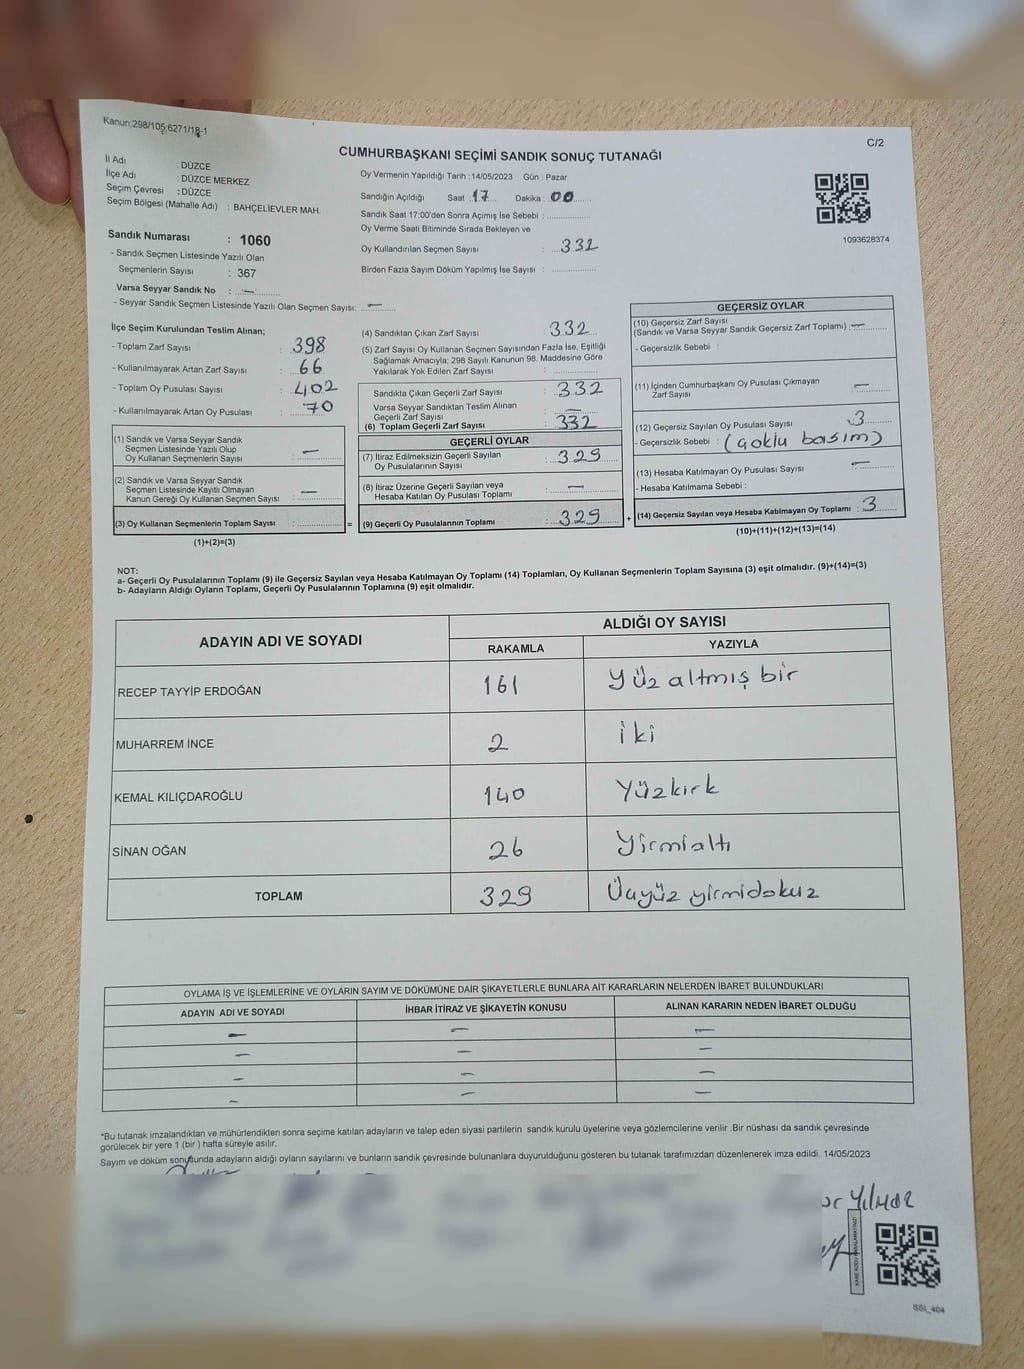 Kanun:298/105;6271/18-1
C/2
CUMHURBAŞKANI SEÇİMİ SANDIK SONUÇ TUTANAĞI
İl Adı : DÜZCE
İlçe Adı : DÜZCE MERKEZ
Seçim Çevresi : DÜZCE
Seçim Bölgesi (Mahalle Adı) : BAHÇELİEVLER MAH.
Oy Vermenin Yapıldığı Tarih :14/05/2023 Gün : Pazar
Sandığın Açıldığı Saat :17 Dakika : 00
Sandık Saat 17:00'den Sonra Açımış İse Sebebi :
Oy Verme Saati Bitiminde Sırada Bekleyen ve
Oy Kullandırılan Seçmen Sayısı : 332
Birden Fazla Sayım Döküm Yapılmış İse Sayısı :
1093628374
Sandık Numarası : 1060
- Sandık Seçmen Listesinde Yazılı Olan
Seçmenlerin Sayısı : 367
Varsa Seyyar Sandık No : —
- Seyyar Sandık Seçmen Listesinde Yazılı Olan Seçmen Sayısı: —
İlçe Seçim Kurulundan Teslim Alınan;
- Toplam Zarf Sayısı : 398
- Kullanılmayarak Artan Zarf Sayısı : 66
- Toplam Oy Pusulası Sayısı : 402
- Kullanılmayarak Artan Oy Pusulası : 70
(1) Sandık ve Varsa Seyyar Sandık
Seçmen Listesinde Yazılı Olup
Oy Kullanan Seçmenlerin Sayısı : —
(2) Sandık ve Varsa Seyyar Sandık
Seçmen Listesinde Kayıtlı Olmayan
Kanun Gereği Oy Kullanan Seçmen Sayısı : —
(3) Oy Kullanan Seçmenlerin Toplam Sayısı : =
(1)+(2)=(3)
(4) Sandıktan Çıkan Zarf Sayısı : 332
(5) Zarf Sayısı Oy Kullanan Seçmen Sayısından Fazla İse, Eşitliği
Sağlamak Amacıyla; 298 Sayılı Kanunun 98. Maddesine Göre
Yakılarak Yok Edilen Zarf Sayısı :
Sandıkta Çıkan Geçerli Zarf Sayısı : 332
Varsa Seyyar Sandıktan Teslim Alınan
Geçerli Zarf Sayısı : —
(6) Toplam Geçerli Zarf Sayısı : 332
GEÇERLİ OYLAR
(7) İtiraz Edilmeksizin Geçerli Sayılan
Oy Pusulalarının Sayısı : 329
(8) İtiraz Üzerine Geçerli Sayılan veya
Hesaba Katılan Oy Pusulası Toplamı : —
(9) Geçerli Oy Pusulalarının Toplamı : 329 +
GEÇERSİZ OYLAR
(10) Geçersiz Zarf Sayısı
(Sandık ve Varsa Seyyar Sandık Geçersiz Zarf Toplamı) : —
- Geçersizlik Sebebi :
(11) İçinden Cumhurbaşkanı Oy Pusulası Çıkmayan
Zarf Sayısı : —
(12) Geçersiz Sayılan Oy Pusulası Sayısı : 3
- Geçersizlik Sebebi : (Çoklu basım)
(13) Hesaba Katılmayan Oy Pusulası Sayısı : —
- Hesaba Katılmama Sebebi :
(14) Geçersiz Sayılan veya Hesaba Katılmayan Oy Toplamı : 3
(10)+(11)+(12)+(13)=(14)
NOT:
a- Geçerli Oy Pusulalarının Toplamı (9) ile Geçersiz Sayılan veya Hesaba Katılmayan Oy Toplamı (14) Toplamları, Oy Kullanan Seçmenlerin Toplam Sayısına (3) eşit olmalıdır. (9)+(14)=(3)
b- Adayların Aldığı Oyların Toplamı, Geçerli Oy Pusulalarının Toplamına (9) eşit olmalıdır.
ADAYIN ADI VE SOYADI ALDIĞI OY SAYISI
RAKAMLA YAZIYLA
RECEP TAYYİP ERDOĞAN 161 Yüz altmış bir
MUHARREM İNCE 2 iki
KEMAL KILIÇDAROĞLU 140 Yüzkırk
SİNAN OĞAN 26 Yirmialtı
TOPLAM 329 Üçyüz yirmidokuz
OYLAMA İŞ VE İŞLEMLERİNE VE OYLARIN SAYIM VE DÖKÜMÜNE DAİR ŞİKAYETLERLE BUNLARA AİT KARARLARIN NELERDEN İBARET BULUNDUKLARI
ADAYIN ADI VE SOYADI İHBAR İTİRAZ VE ŞİKAYETİN KONUSU ALINAN KARARIN NEDEN İBARET OLDUĞU
— — —
— — —
— — —
— — —
*Bu tutanak imzalandıktan ve mühürlendikten sonra seçime katılan adayların ve talep eden siyasi partilerin sandık kurulu üyelerine veya gözlemcilerine verilir .Bir nüshası da sandık çevresinde
görülecek bir yere 1 (bir ) hafta süreyle asılır.
Sayım ve döküm sonunda adayların aldığı oyların sayılarını ve bunların sandık çevresinde bulunanlara duyurulduğunu gösteren bu tutanak tarafımızdan düzenlenerek imza edildi. 14/05/2023
Yılmaz
SSI_404